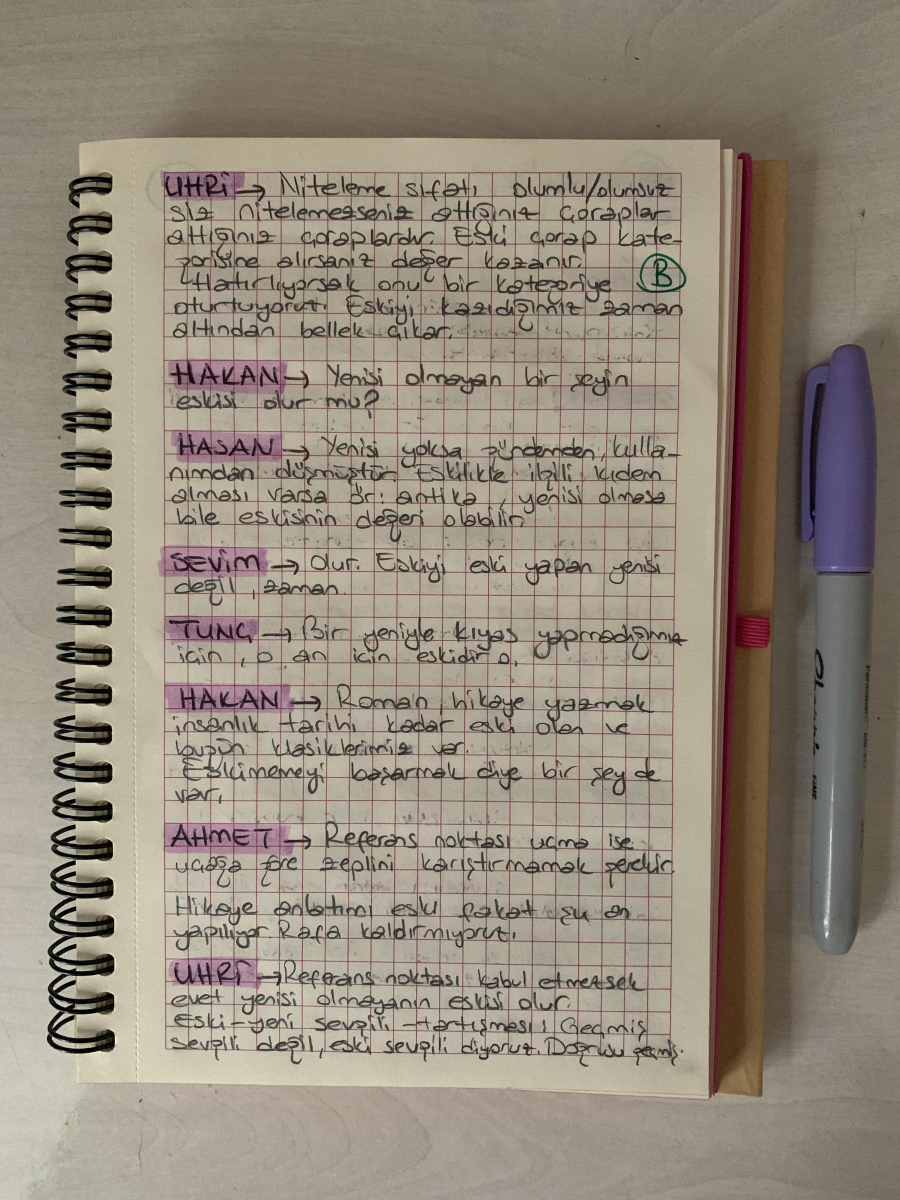 UHRİ → Niteleme sıfatı olumlu/olumsuz
siz nitelemezseniz attığınız çoraplar
attığınız çoraplardır. Eski çorap kate-
gorisine alırsanız değer kazanır.
B
Hatırlıyorsak onu bir kategoriye
oturtuyoruz. Eskiyi kazıdığımız zaman
altından bellek çıkar.
HAKAN → Yenisi olmayan bir şeyin
eskisi olur mu?
HASAN → Yenisi yoksa gündemden, kulla-
nımdan düşmüştür. Eskilikle ilgili kıdem
alması varsa ör: antika, yenisi olmasa
bile eskisinin değeri olabilir.
SEVİM → Olur. Eskiyi eski yapan yenisi
değil, zaman.
TUNÇ → Bir yeniyle kıyas yapmadığımız
için, o an için eskidir o.
HAKAN → Roman, hikaye yazmak
insanlık tarihi kadar eski olan ve
bugün klasiklerimiz var.
Eskimemeyi başarmak diye bir şey de
var.
AHMET → Referans noktası uçma ise
uçağa göre zeplini karıştırmamak gerekir.
Hikaye anlatımı eski fakat şu an
yapılıyor Rafa kaldırmıyoruz.
UHRİ → Referans noktası kabul etmezsek
evet yenisi olmayanın eskisi olur.
Eski-yeni sevgili tartışması! Geçmiş
sevgili değil, eski sevgili diyoruz. Doğrusu geçmiş.